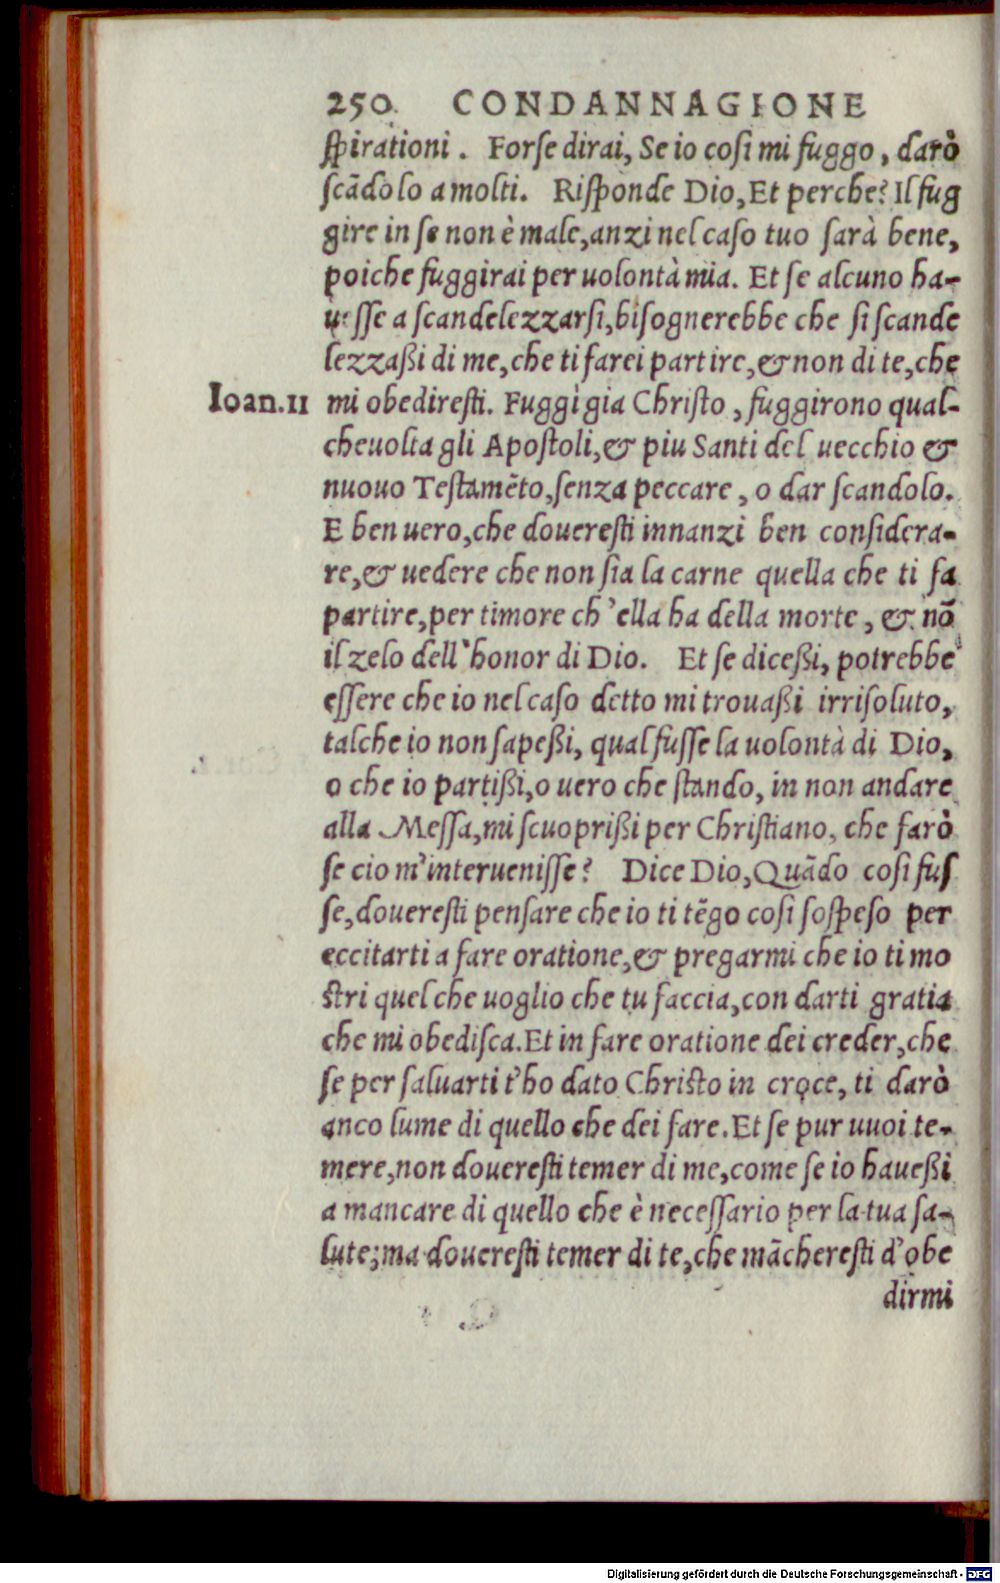 250. CONDANNAGIONE
ſpirationi. Forſe dirai, Se io coſi mi fuggo, darò
ſcãdolo a molti. Riſponde Dio, Et perche? Il fug
gire in ſe non è male, anzi nel caſo tuo ſarà bene,
poiche fuggirai per uolontà mia. Et ſe alcuno ha-
ueſſe a ſcandelezzarſi, biſognerebbe che ſi ſcande
lezzaßi di me, che ti farei partire, & non di te, che
Ioan.11 mi obedireſti. Fuggì gia Chriſto, fuggirono qual-
che uolta gli Apoſtoli, & piu Santi del uecchio &
nuouo Teſtamẽto, ſenza peccare, o dar ſcandolo.
E ben uero, che doureſti innanzi ben conſidera-
re, & uedere che non ſia la carne quella che ti fa
partire, per timore ch'ella ha della morte, & nõ
il zelo dell'honor di Dio. Et ſe diceßi, potrebbe
eſſere che io nel caſo detto mi trouaßi irriſoluto,
talche io non ſapeßi, qual fuſſe la uolontà di Dio,
o che io partißi, o uero che ſtando, in non andare
alla Meſſa, mi ſcuoprißi per Chriſtiano, che farò
ſe cio m'interueniſſe? Dice Dio, Quãdo coſi fuſ
ſe, doureſti penſare che io ti tẽgo coſi ſoſpeſo per
eccitarti a fare oratione, & pregarmi che io ti mo
ſtri quel che uoglio che tu faccia, con darti gratia
che mi obediſca. Et in fare oratione dei creder, che
ſe per ſaluarti t'ho dato Chriſto in croce, ti darò
anco lume di quello che dei fare. Et ſe pur uuoi te-
mere, non doureſti temer di me, come ſe io haueßi
a mancare di quello che è neceſſario per la tua ſa-
lute; ma doureſti temer di te, che mãchereſti d'obe
dirmi
Digitalisierung gefördert durch die Deutsche Forschungsgemeinschaft - DFG